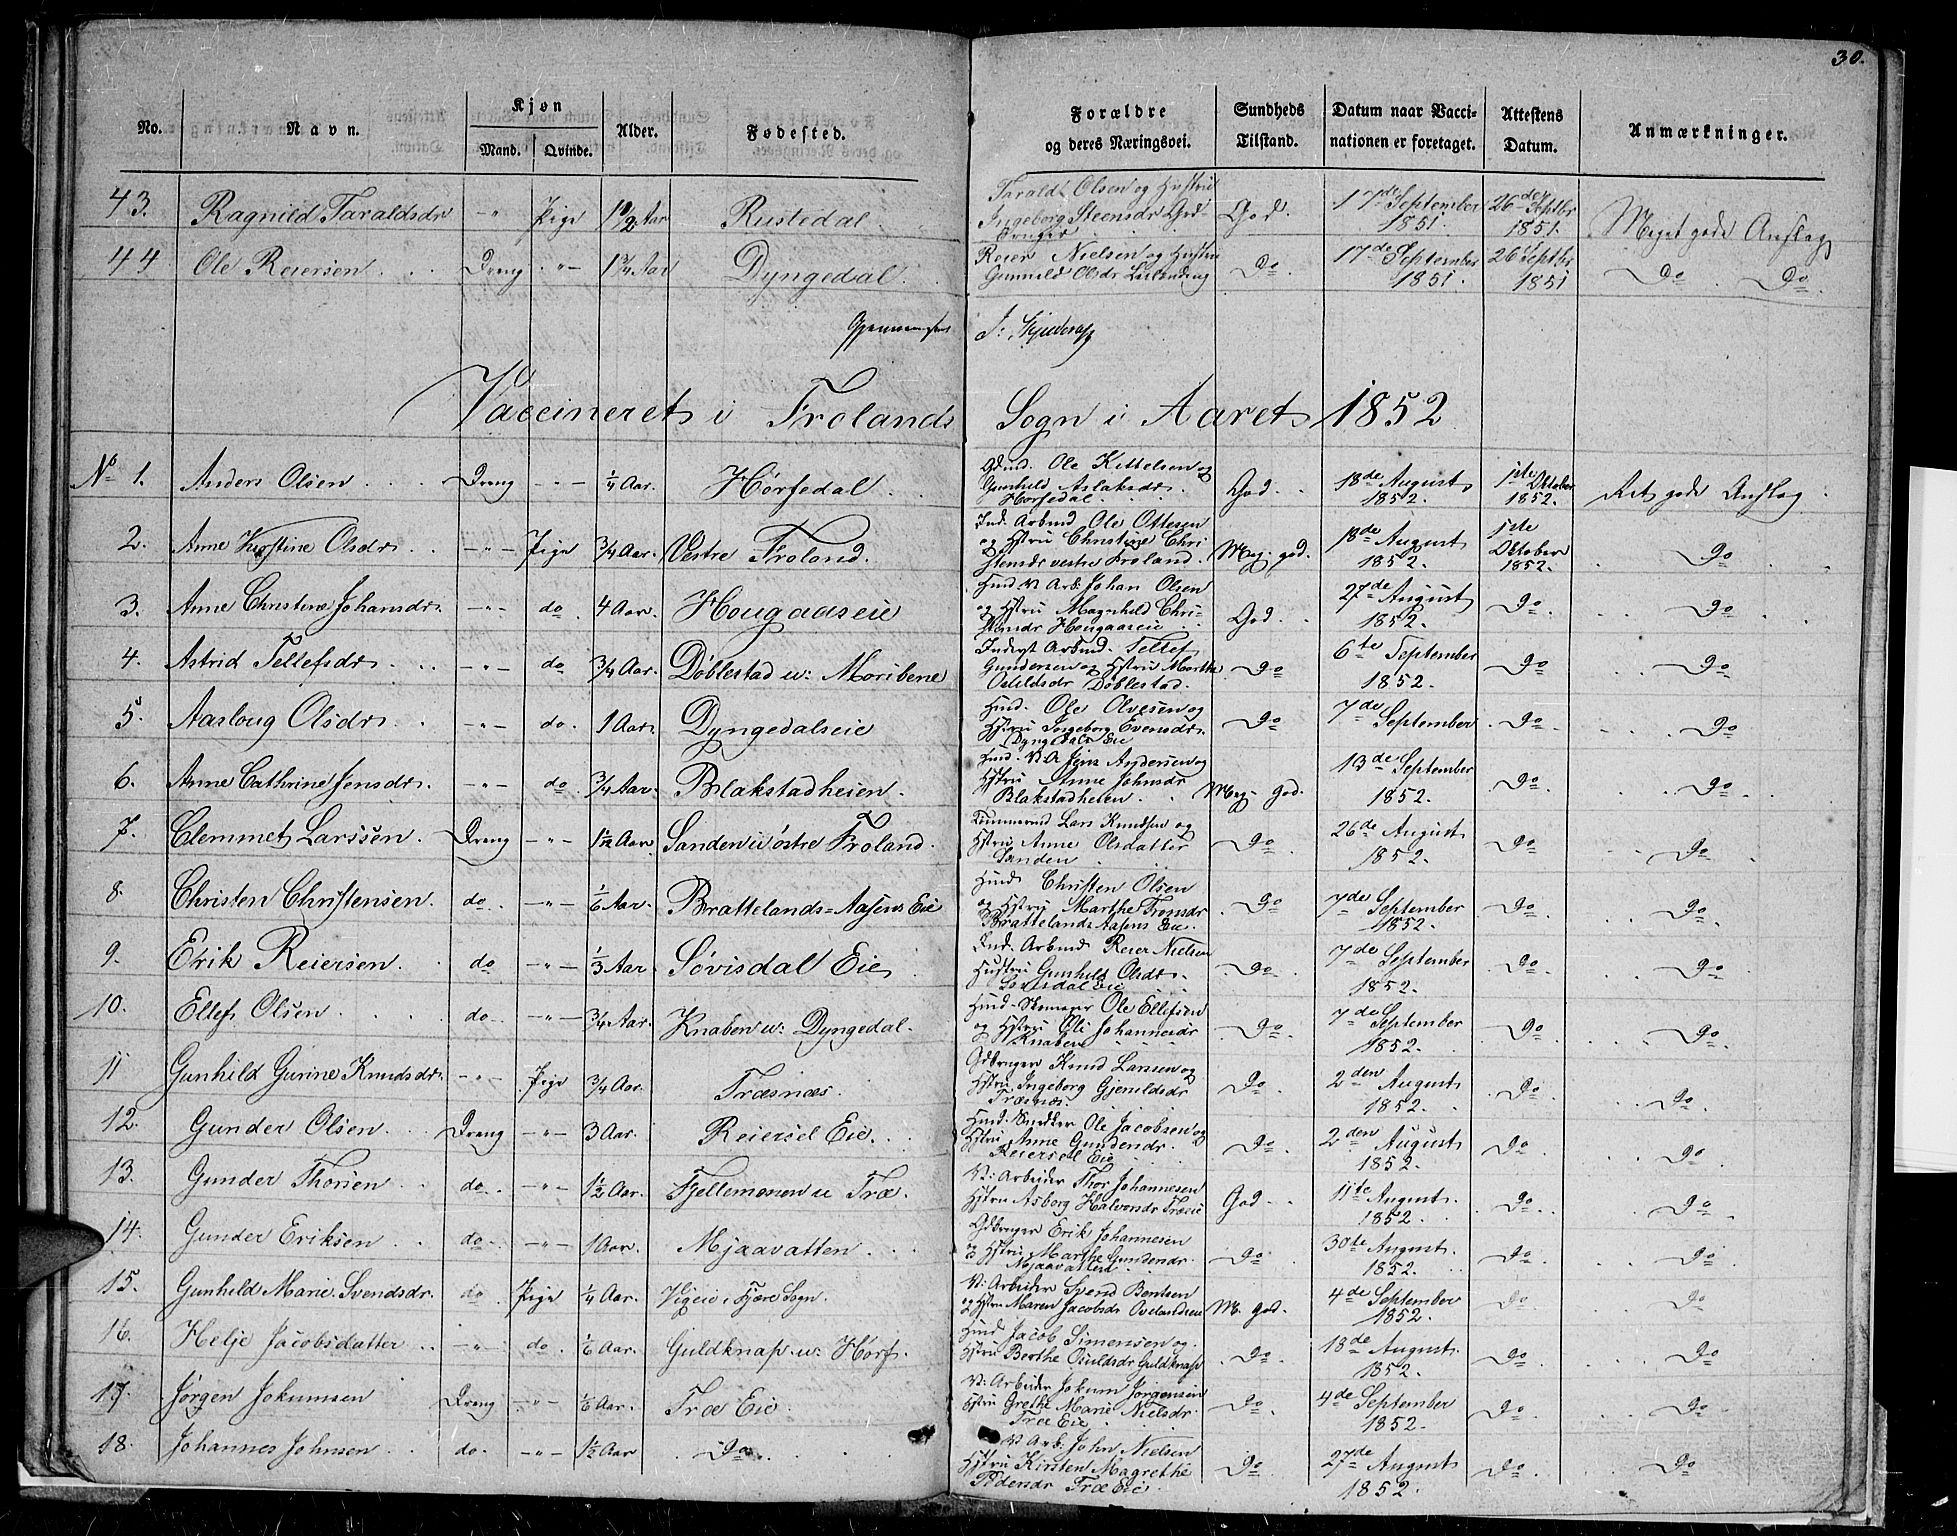 30.
No. Navn. Kjøn Mand. Qvinde. Alder. Fødested. Forældre og deres Næringsvei. Sundheds Tilstand. Datum naar Vaccinationen er foretaget. Attestens Datum. Anmærkninger.
43. Ragnild Taraldsdr -"- Pige 1 1/2 Aar Rustedal Taraldt Olsen og Hustru
Ingeborg Steensdr God. 17de September 1851. 26de Septbr 1851. Meget gode Anslag
44 Ole Reiersen Dreng -"- 1 3/4 Aar Dyngedal. Reier Nielsen og Hustru
Gunnild Olsdr Do 17de September 1851. 26 Septbr 1851 Do Do
Vaccineret i Frolands Sogn i Aaret 1852
No 1. Anders Olsen Dreng -"- 1/4 Aar. Hörfedal Ole Kittelsen og
Gunhild Aslaksdr
Hörfedal God 18de August 1852. 1ste Oktober 1852. Ret gode Anslag
2. Anne Kirstine Olsdr -"- Pige 3/4 Aar. Vestre Froland. Ind. Arbmd Ole Ottesen
og Hstru Christine Chri
stensdr vestre Froland. Meg. god. 18de August 1852. 1ste Oktober 1852. Do
3. Anne Christine Johansdr -"- do 4 Aar. Hougaaseie Hmd V Arb. Johan Olsen
og Hstru Magnhild Chri-
stensdr Hougaaseie God. 27de August 1852. Do Do
4. Astrid Tellefsdr -"- do 3/4 Aar. Döblestad u: Möribene Indvst Arbmd. Tellef
Gundersen og Hstru Marthe
Osuldsdr Döblestad. Do 6te September 1852. Do Do
5. Aasloug Olsdr -"- do. 1 Aar. Dyngedalseie Hmd. Ole Olvesen og
Hstru Ingeborg Evensdr
Dyngedals Eie Do 7de September Do Do
6. Anne Cathrine Jensdr. -"- do 3/4 Aar. Blakstadheien. Hmd. V. A Jens Andersen og
Hstru Anne Johnsdr
Blakstadheien. Meg. God. 13de September 1852. Do Do
7. Clemmet Larssen. Dreng -"- 1 1/2 Aar Sanden u östre Froland. Lars Knudsen og
Hstru Anne Olsdatter
Sanden Do 26de August 1852. Do Do
8. Christen Christensen. do. -"- 1/6 Aar. Brattelands-Aasens Eie Hmd Christen Olsen
og Hstru Marthe Tronsdr
Brattelands Aasens Eie. Do 7de September 1852. Do Do
9. Erik Reiersen. do -"- 1/3 Aar Sövisdal Eie Ind. Arbmd Reier Nielsen
Hustru Gunhild Olsdr.
Sövisdal Eie Do 7de September 1852. Do Do
10. Ellef Olsen do -"- 3/4 Aar. Knaben u: Dyngedal. Hmd. Ole Ellefsen
og Hstru Oli Johannesdr
Knaben Do 7de September 1852. Do Do
11 Gunhild Gurine Knudsdr. -"- Pige 3/4 Aar. Træsnæs. Gdbruger Knud Larsen og
Hstru Ingeborg Gjeruldsdr
Træsnæs. Do 2den August 1852. Do Do
12. Gunder Olsen Dreng -"- 3 Aar. Reiersel Eie. Hmd. Ole Jacobsen og
Hstru Anne Gundersdr.
Reiersel Eie Do 2den August 1852. Do Do
13. Gunder Thorsen do. -"- 1 1/2 Aar. Fjellemonen u Træ. V: Arbeider Thor Johannesen
Hstru Asborg Halvorsdr Træeie God 11te August 1852. Do Do
14. Gunder Eriksen do -"- 1 Aar. Mjaavatten Gdbruger Erik Johannesen
og Hstru Marthe Gundersdr.
Mjaavatten Do 30te August 1852. Do Do
15. Gunhild Marie Svendsdr. do Pige 1/4 Aar. Vigeie i Fjære Sogn. V: Arbeider Svend Bentsen
og Hstru Maren Jacobsdr Ovelandseie M. god. 4de September 1852. Do Do
16. Helje Jacobsdatter -"- do. 1/6 Aar. Guldknap u: Hörf. Hmd Jacob Simensen og
Hstru Berthe Osuldsdr Guldknap Do 18de August 1852. Do Do
17. Jørgen Jokumsen Dreng -"- 1/6 Aar. Træ Eie. V: Arbeider Jokum Jørgensen
Hstru Grethe Marie Nielsdr.
Træ Eie Do. 4de September 1852. Do Do
18. Johannes Johnsen do. -"- 1 1/2 Aar Do V. Arb. John Nielsen
Hstru Kirsten Magrethe
Pedersdr Træ Eie. Do 27de August 1852 Do Do